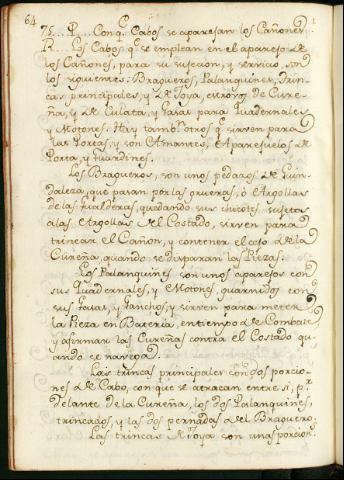 64.
75. P. Con q.e Cabos se aparejan los Cañones?
R. Los Cabos q.e se emplean en el aparejo de
los Cañones, para su sujecion, y servicio, son
los siguientes: Bragueros, Palanquines, Trin-
cas principales, y de Joya, otrons de Cure-
ña, y de Culata, y Gasas para Quadernales
y Motones. Hay tamb.n otros q.e sirven para
las Portas, y son Amantes, Aparejuelos de
Porta, y Guardines.
Los Bragueros, son unos pedazos de Guin-
daleza, que pasan por las grueras, ó Argollas
de las Gualderas, quedando sus chicotes sujetos
a las Argollas del Costado, sirven para
trincar el Cañon, y contener el coso de la
Cureña, quando se disparan las Piezas.
Los Palanquines son unos aparejos con
sus Quadernales, y Motones, guarnidos con
sus Gasas, y Ganchos, y sirven para meter
la Pieza en Bateria, en tiempo de Combate
y afirmar las Cureñas contra el Costado qu-
ando se navega.
Las trincas principales son dos porcio-
nes de Cabo, con que se atracan entre si, p.r
delante de la Cureña, los dos Palanquines,
trincados, y las dos pernadas del Braguero.
Las trincas de Joya son unas porcion.s